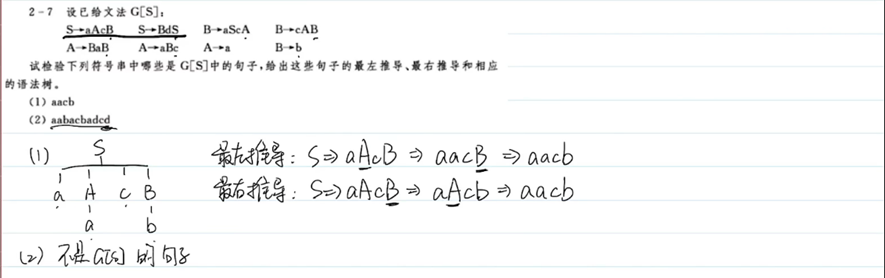 2-7 设已给文法 G[S]:
S→aAcB S→BdS B→aScA B→cAB
A→BaB A→aBc A→a B→b
试检验下列符号串中哪些是 G[S]中的句子,给出这些句子的最左推导、最右推导和相应
的语法树。
(1) aacb
(2) aabacbadcd
(1) S 最左推导: S⇒aAcB ⇒ aacB ⇒ aacb
a A c B 最右推导: S⇒aAcB ⇒ aAcb ⇒ aacb
a b
(2) 不是G[S]的句子